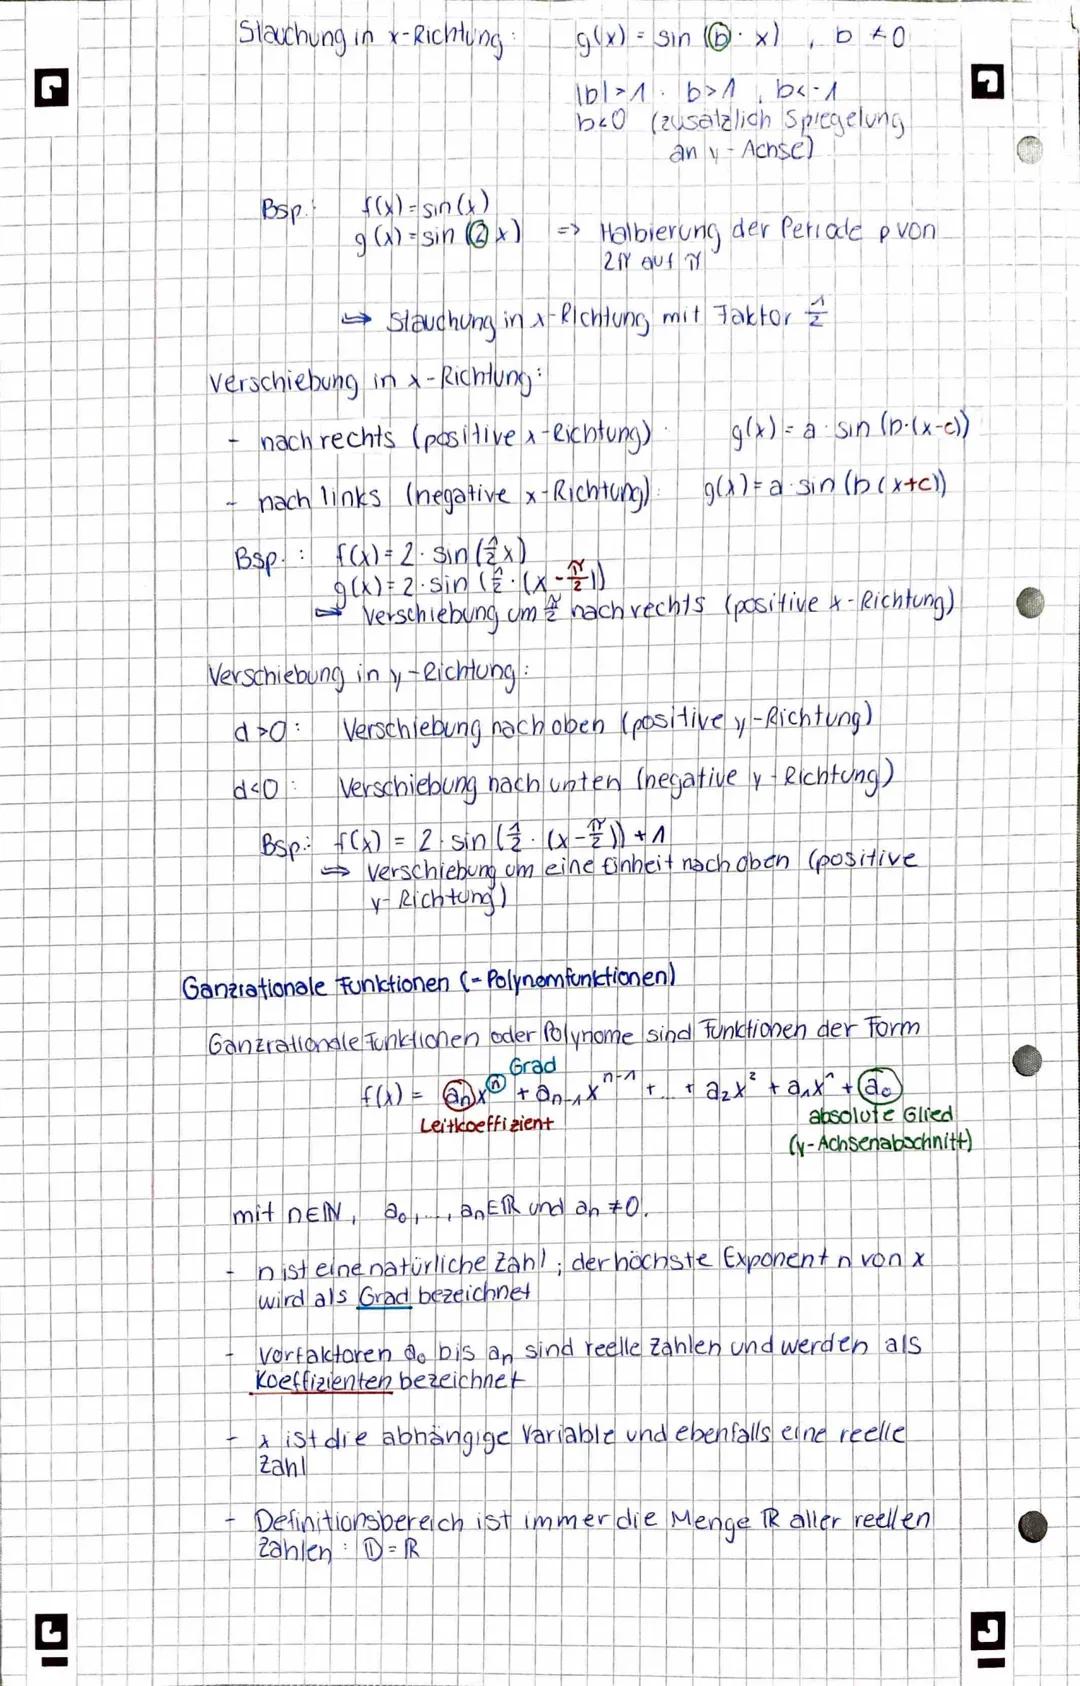 Stauchung in x-Richtung: g(x) = sin (b · x) , b ≠ 0
|b| > 1 : b > 1 , b < -1
b < 0 (zusätzlich Spiegelung
an y-Achse)
Bsp.: f(x) = sin(x)
g(x) = sin (2x) => Halbierung der Periode p von
2π auf π
↪ Stauchung in x-Richtung mit Faktor 1/2
Verschiebung in x-Richtung:
- nach rechts (positive x-Richtung): g(x) = a · sin (b·(x-c))
- nach links (negative x-Richtung): g(x) = a · sin (b(x+c))
Bsp.: f(x) = 2 · sin (1/2 x)
g(x) = 2 · sin (1/2 · (x - π/2))
↪ Verschiebung um π/2 nach rechts (positive x-Richtung)
Verschiebung in y-Richtung:
d > 0: Verschiebung nach oben (positive y-Richtung)
d < 0: Verschiebung nach unten (negative y-Richtung)
Bsp.: f(x) = 2 · sin (1/2 · (x - π/2)) + 1
↪ Verschiebung um eine Einheit nach oben (positive
y-Richtung)
Ganzrationale Funktionen (= Polynomfunktionen)
Ganzrationale Funktionen oder Polynome sind Funktionen der Form
Grad
f(x) = aₙxⁿ + aₙ₋₁xⁿ⁻¹ + ... + a₂x² + a₁x¹ + a₀
Leitkoeffizient absolute Glied
(y-Achsenabschnitt)
mit n∈ℕ, a₀, ..., aₙ∈ℝ und aₙ ≠ 0.
- n ist eine natürliche Zahl; der höchste Exponent n von x
wird als Grad bezeichnet
- Vorfaktoren a₀ bis aₙ sind reelle Zahlen und werden als
Koeffizienten bezeichnet
- x ist die abhängige Variable und ebenfalls eine reelle
Zahl
- Definitionsbereich ist immer die Menge ℝ aller reellen
Zahlen: 𝔻 = ℝ